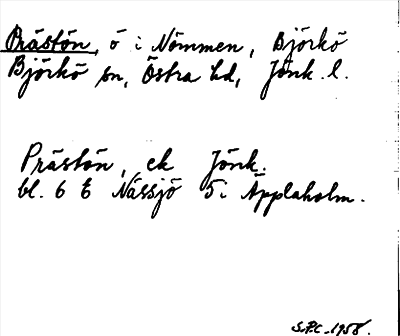 Prästön, ö i Nömmen, Björkö
Björkö sn, Östra hd, Jönk. l.
Prästön, ek Jönk.
bl. 6 E Nässjö 5 i Äpplaholm.
S.P.C. 1958.